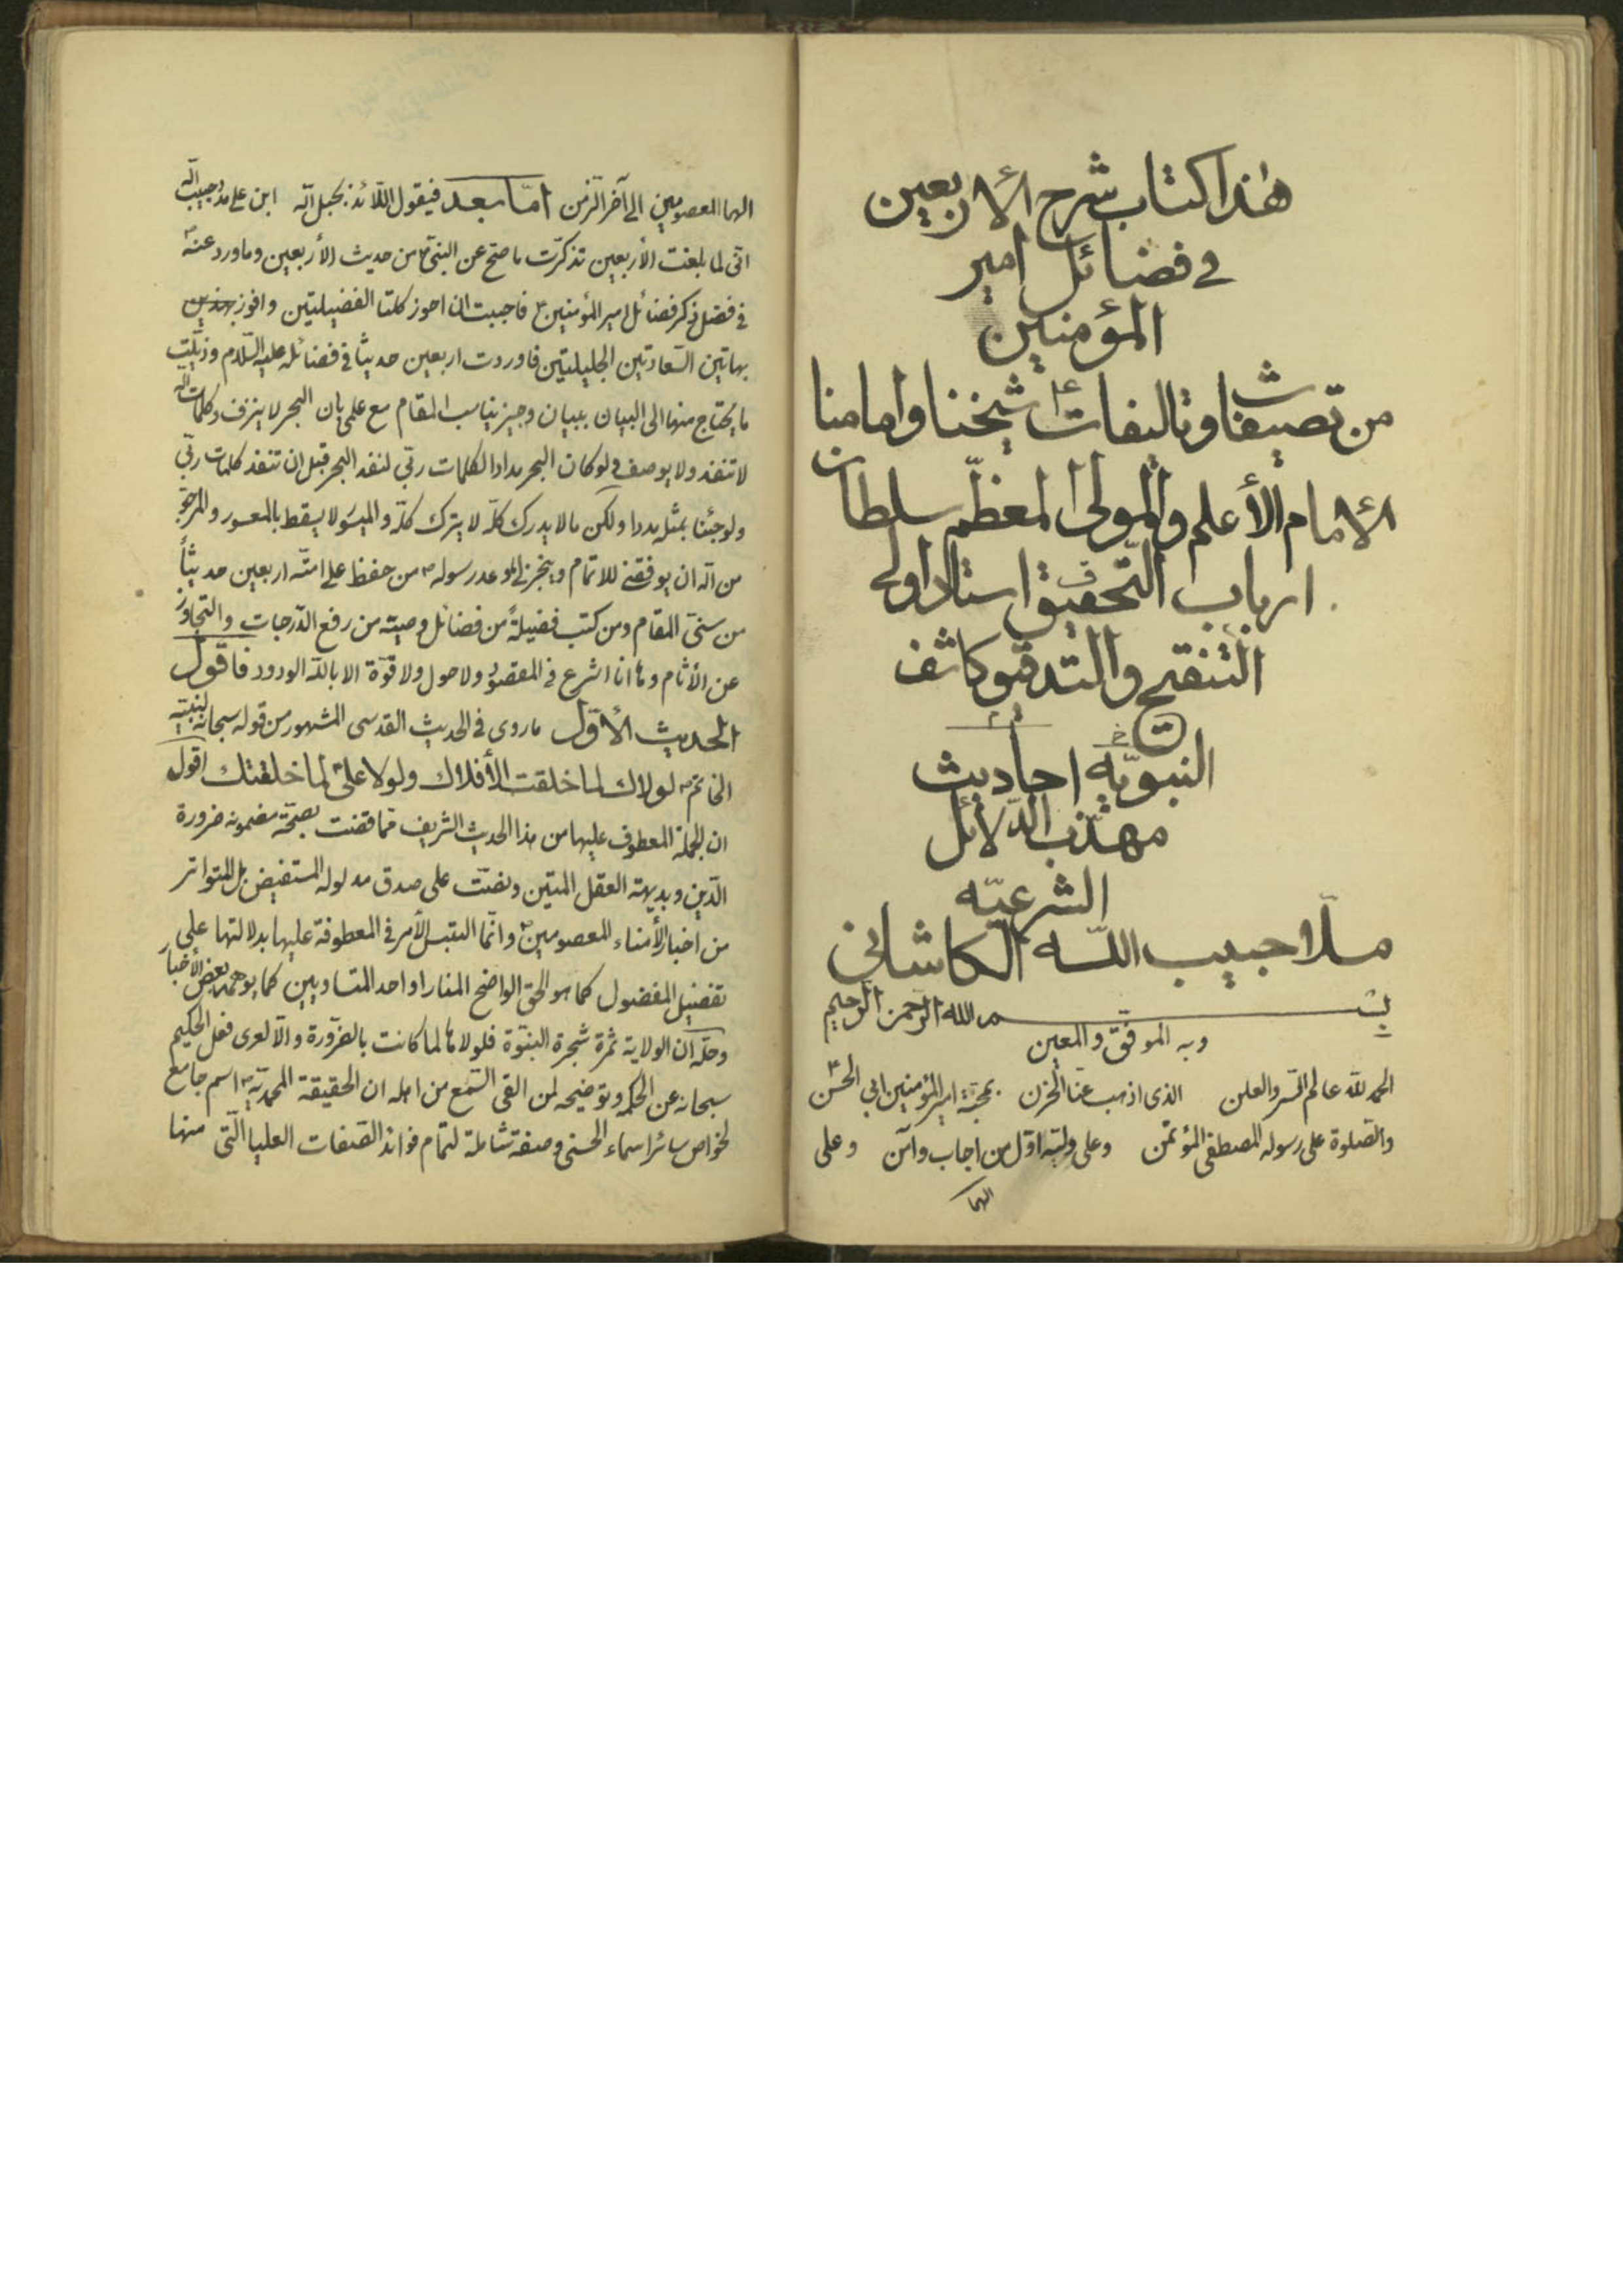 هذا كتاب شرح الأربعين
في فضائل امير
المؤمنين
من تصنيفات وتاليفات شيخنا وامامنا
الأمام الأعلم والمولى المعظّم سلطان
ارباب التّحقيق استاد اولى
التنقيح والتدقيق كاشف
النبويّه احاديث
مهذّب الدّلائل
الشرعيّه
ملّا حبيب اللّه الكاشاني
بسم الله الرّحمن الرّحيم
وبه الموفّق والمعين
الحمد للّه عالم السّر والعلن الذى اذهب عنّا الحزن بمحبّة امير المؤمنين ابي الحسن
والصّلوة على رسوله المصطفى المؤتمن وعلى وليّه اوّل من اجاب وآمن وعلى
الهما
الهما المعصومين الى آخر الزّمن امّا بعد فيقول اللّائذ بحبل اللّه ابن على مدد حبيب اللّه
انّى لما بلغت الأربعين تذكّرت ما صحّ عن النبىّ من حديث الأربعين وما ورد عنه
في فضل ذكر فضائل امير المؤمنين فاحببت ان احوز كلتا الفضيلتين وافوز
بهاتين السّعادتين الجليلتين فاوردت اربعين حديثا في فضائله عليه السّلام وذيّلت
ما يحتاج منها الى البيان ببيان وجيز يناسب المقام مع علمى بان البحر لا ينزف وكلمات اللّه
لا تنفد ولا يوصف ولو كان البحر مدادا لكلمات ربّي لنفد البحر قبل ان تنفد كلمات ربّي
ولو جئنا بمثله مددا ولكن ما لا يدرك كلّه لا يترك كلّه والميسور لا يسقط بالمعسور والمرجوّ
من اللّه ان يوفقنى للاتمام وينجز لي ما وعد رسوله من حفظ على امّته اربعين حديثاً
من سنىّ المقام ومن كتب فضيلةً من فضائل وصيّه من رفع الدّرجات والتجاوز
عن الأثام وها انا اشرع في المقصود ولا حول ولا قوّة الا باللّه الودود فاقول
الحديث الأوّل ما روى في الحديث القدسى المشهور من قوله سبحانه لنبيّه
الخاتم لولاك لما خلقت الأفلاك ولولا علىّ لما خلقتك اقول
ان الجملة المعطوف عليها من هذا الحديث الشريف ممّا قضت بصحّة مضمونه ضرورة
الدّين وبديهة العقل المتين ونصّت على صدق مدلوله المستفيض بل المتواتر
من اخبار الأمناء المعصومين وانّما التبس الأمر في المعطوفة عليها بدلالتها على
تفضيل المفضول كما هو الحق الواضح المنار او احد المتساويين كما يوهمه بعض الأخبار
وحلّه ان الولاية ثمرة شجرة النبوّة فلولاها لما كانت بالضّرورة والّا لعرى فعل الحكيم
سبحانه عن الحكمة وتوضيحه لمن القى السّمع من اهله ان الحقيقة المحمديّة اسم جامع
لخواص سائر اسماء الحسنى وصفة شاملة لتمام فوائد الصّفات العليا الّتى منها